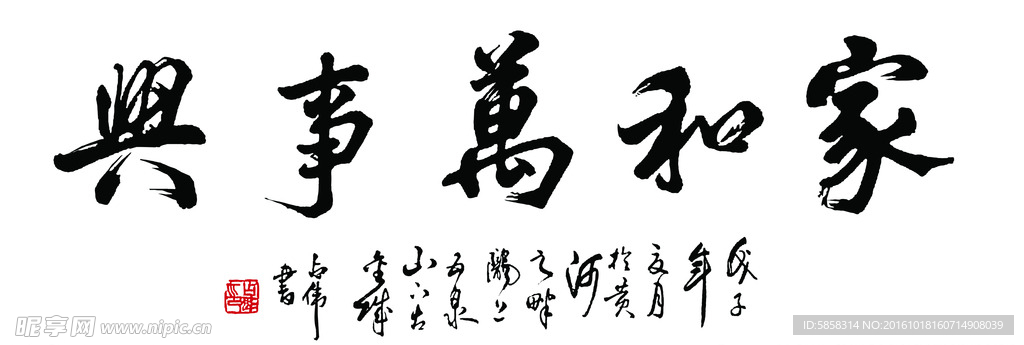 家和萬事興
戊子
年
夏月
於黄
河
之畔
五泉
山下古
金城
占伟
書
昵享网 www.nipic.cn
ID:5858314 NO:20161018160714908039